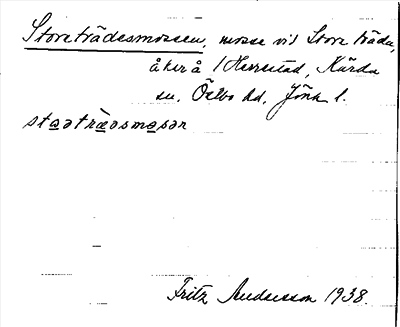 Storeträdesmossen, mosse vid Store träda,
åker å 1 Herrestad, Kärda
sn, Östbo hd, Jönk. l.
stɷətrɛ̀dsmɷsən
Fritz Andersson 1938.